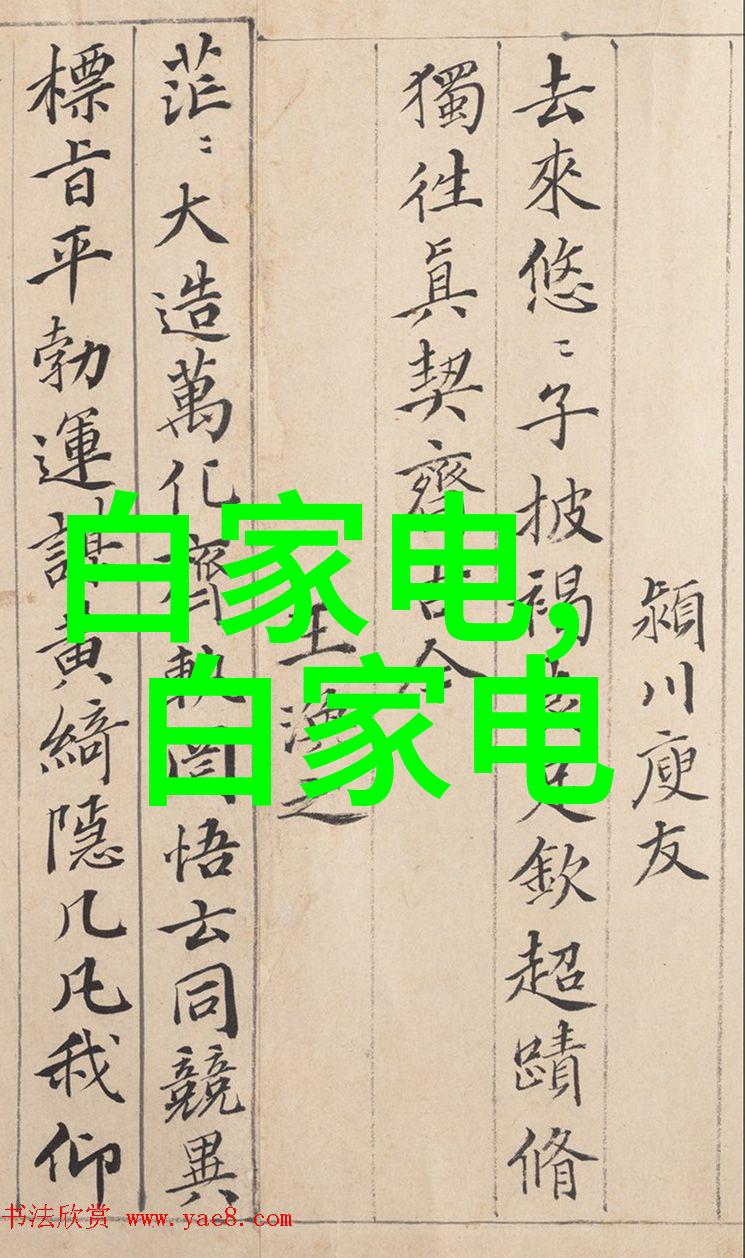 潁川庾友
去來悠:子披褐
欽超蹟脩
獨往真契齊古今
王渙之
茫:大造萬化齊軌罔悟玄同競異
標旨平勃運謀黃綺隱几凡我仰
白家电,
白家电
书法欣赏 www.yac8.com